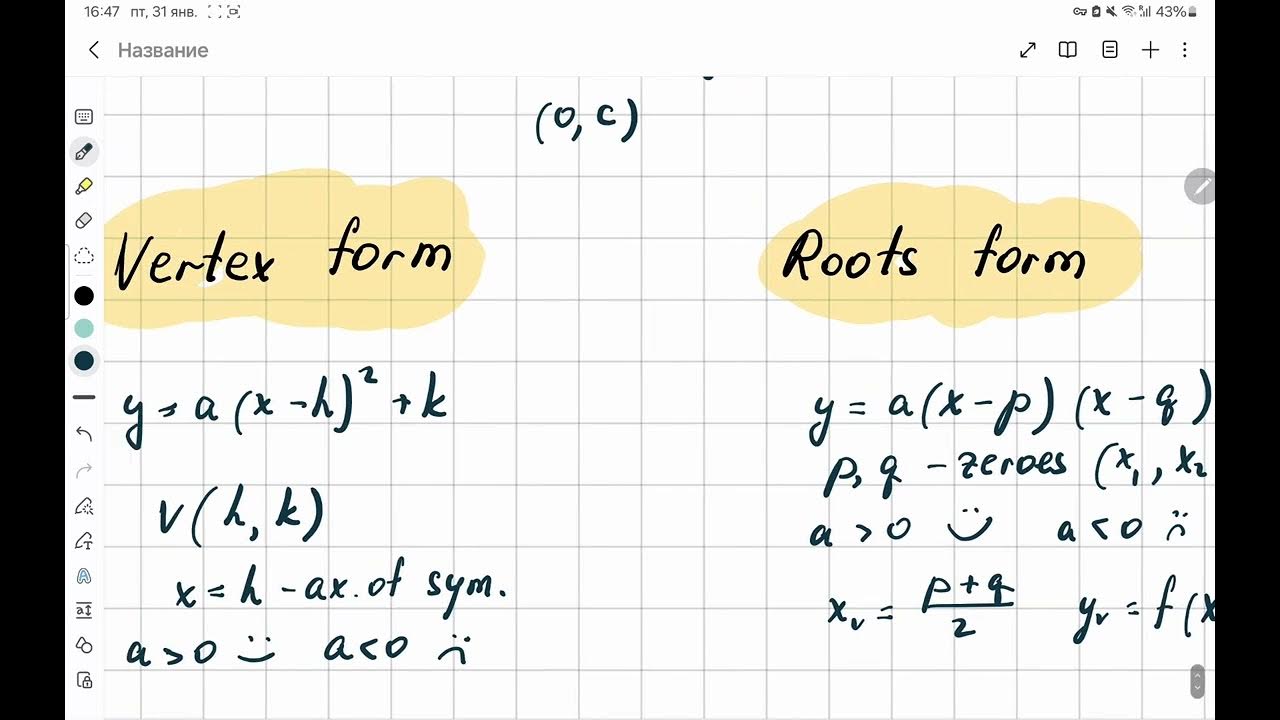 16:47 пт, 31 янв. 43%
Название
(0, c)
Vertex form
y = a (x - h)² + k
V(h, k)
x = h - ax. of sym.
a > 0 a < 0
Roots form
y = a(x - p) (x - q)
p, q - zeroes (x₁, x₂
a > 0 a < 0
xᵥ = (p + q)/2 yᵥ = f(x